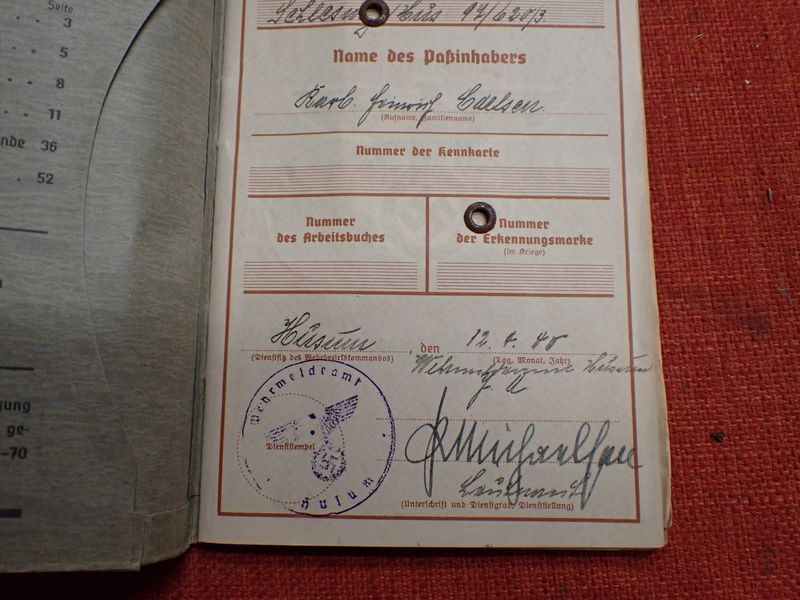 Seite
3
5
8
11
nde 36
52
gung
ge-
-70
Schleswig/Hus 97/620/3
Name des Paßinhabers
Karl Heinrich Carlsen
(Rufname, Familienname)
Nummer der Kennkarte
Nummer
des Arbeitsbuches
Nummer
der Erkennungsmarke
(im Kriege)
Husum, den 12. 4. 40
(Dienstsitz des Wehrbezirkskommandos) (Tag, Monat, Jahr)
Wehrmeldeamt Husum
Wehrmeldeamt
Dienststempel
Husum
Leutnant
(Unterschrift und Dienstgrad, Dienststellung)